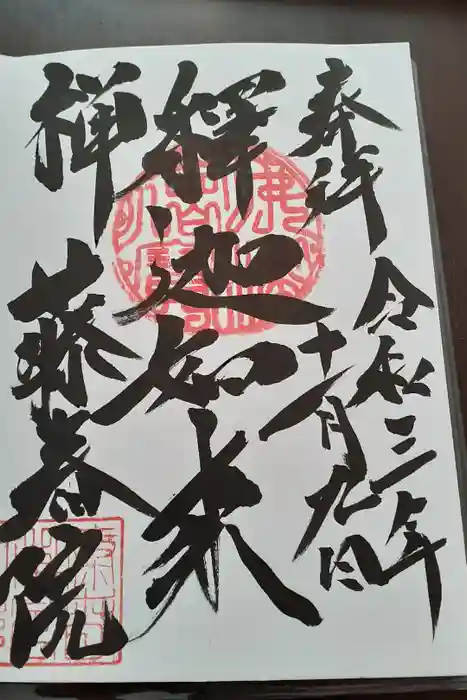 奉拝
令和三年
十一月九日
釋迦如来
禅
藤春院